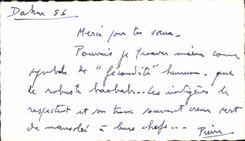 Dakar 56
Merci pour tes vœux.
Pouvais je trouver mieux comme
symbole de "fécondité" humour. que
le robuste baobab.. Les indigènes le
respectent et son tronc souvent creux sert
de mausolée à leurs chefs...
Pierre